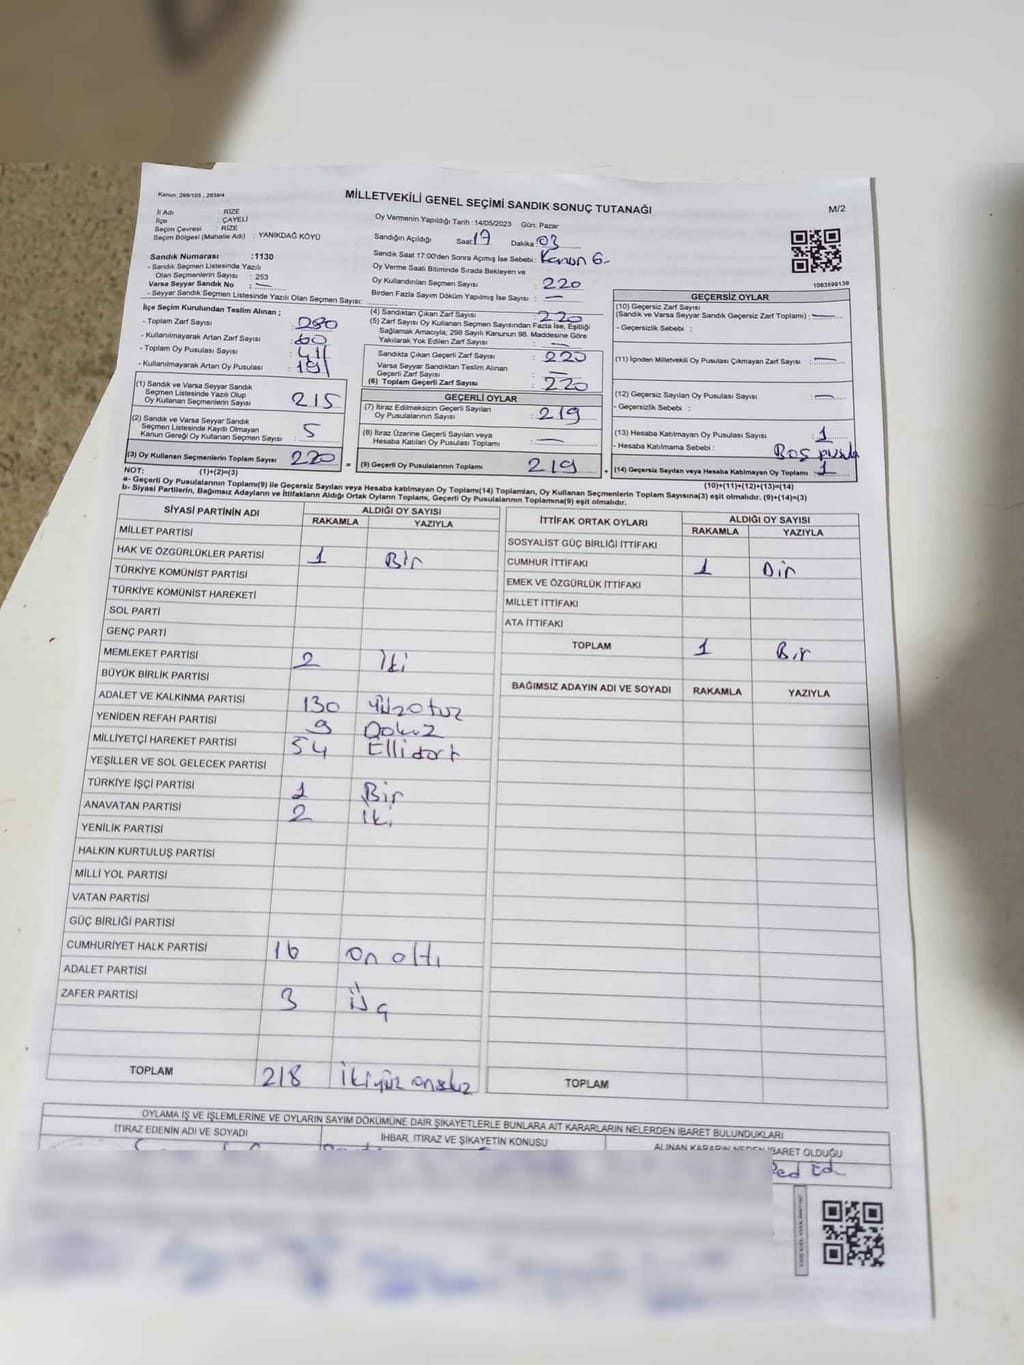 Kanun: 298/105 , 2839/4
MİLLETVEKİLİ GENEL SEÇİMİ SANDIK SONUÇ TUTANAĞI
M/2
İl Adı : RİZE
İlçe : ÇAYELİ
Seçim Çevresi : RİZE
Seçim Bölgesi (Mahalle Adı) : YANIKDAĞ KÖYÜ
Sandık Numarası :1130
- Sandık Seçmen Listesinde Yazılı
Olan Seçmenlerin Sayısı : 253
Varsa Seyyar Sandık No : —
- Seyyar Sandık Seçmen Listesinde Yazılı Olan Seçmen Sayısı:
Oy Vermenin Yapıldığı Tarih :14/05/2023 Gün: Pazar
Sandığın Açıldığı Saat: 19 Dakika: 03
Sandık Saat 17:00'den Sonra Açılmış İse Sebebi : Kanun G.
Oy Verme Saati Bitiminde Sırada Bekleyen ve
Oy Kullandırılan Seçmen Sayısı : 220
Birden Fazla Sayım Döküm Yapılmış İse Sayısı : —
1083599130
İlçe Seçim Kurulundan Teslim Alınan ;
- Toplam Zarf Sayısı : 280
- Kullanılmayarak Artan Zarf Sayısı : 60
- Toplam Oy Pusulası Sayısı :
- Kullanılmayarak Artan Oy Pusulası :
(1) Sandık ve Varsa Seyyar Sandık
Seçmen Listesinde Yazılı Olup
Oy Kullanan Seçmenlerin Sayısı : 215
(2) Sandık ve Varsa Seyyar Sandık
Seçmen Listesinde Kayıtlı Olmayan
Kanun Gereği Oy Kullanan Seçmen Sayısı : 5
(3) Oy Kullanan Seçmenlerin Toplam Sayısı : 220
(4) Sandıktan Çıkan Zarf Sayısı : 220
(5) Zarf Sayısı Oy Kullanan Seçmen Sayısından Fazla İse, Eşitliği
Sağlamak Amacıyla; 298 Sayılı Kanunun 98. Maddesine Göre
Yakılarak Yok Edilen Zarf Sayısı : —
Sandıkta Çıkan Geçerli Zarf Sayısı : 220
Varsa Seyyar Sandıktan Teslim Alınan
Geçerli Zarf Sayısı : —
(6) Toplam Geçerli Zarf Sayısı : 220
GEÇERLİ OYLAR
(7) İtiraz Edilmeksizin Geçerli Sayılan
Oy Pusulalarının Sayısı : 219
(8) İtiraz Üzerine Geçerli Sayılan veya
Hesaba Katılan Oy Pusulası Toplamı : —
= (9) Geçerli Oy Pusulalarının Toplamı 219
GEÇERSİZ OYLAR
(10) Geçersiz Zarf Sayısı
(Sandık ve Varsa Seyyar Sandık Geçersiz Zarf Toplamı) : —
- Geçersizlik Sebebi :
(11) İçinden Milletvekili Oy Pusulası Çıkmayan Zarf Sayısı : —
(12) Geçersiz Sayılan Oy Pusulası Sayısı : —
- Geçersizlik Sebebi :
(13) Hesaba Katılmayan Oy Pusulası Sayısı : 1
- Hesaba Katılmama Sebebi : Boş pusula
+ (14) Geçersiz Sayılan veya Hesaba Katılmayan Oy Toplamı : 1
NOT: (1)+(2)=(3)
(10)+(11)+(12)+(13)=(14)
a- Geçerli Oy Pusulalarının Toplamı(9) ile Geçersiz Sayılan veya Hesaba Katılmayan Oy Toplamı(14) Toplamları, Oy Kullanan Seçmenlerin Toplam Sayısına(3) eşit olmalıdır. (9)+(14)=(3)
b- Siyasi Partilerin, Bağımsız Adayların ve İttifakların Aldığı Ortak Oyların Toplamı, Geçerli Oy Pusulalarının Toplamına(9) eşit olmalıdır.
SİYASİ PARTİNİN ADI ALDIĞI OY SAYISI
RAKAMLA YAZIYLA
MİLLET PARTİSİ
HAK VE ÖZGÜRLÜKLER PARTİSİ 1 Bir
TÜRKİYE KOMÜNİST PARTİSİ
TÜRKİYE KOMÜNİST HAREKETİ
SOL PARTİ
GENÇ PARTİ
MEMLEKET PARTİSİ 2 İki
BÜYÜK BİRLİK PARTİSİ
ADALET VE KALKINMA PARTİSİ 130 Yüzotuz
YENİDEN REFAH PARTİSİ 9 Dokuz
MİLLİYETÇİ HAREKET PARTİSİ 54 Ellidört
YEŞİLLER VE SOL GELECEK PARTİSİ
TÜRKİYE İŞÇİ PARTİSİ 1 Bir
ANAVATAN PARTİSİ 2 İki
YENİLİK PARTİSİ
HALKIN KURTULUŞ PARTİSİ
MİLLİ YOL PARTİSİ
VATAN PARTİSİ
GÜÇ BİRLİĞİ PARTİSİ
CUMHURİYET HALK PARTİSİ 16 on altı
ADALET PARTİSİ
ZAFER PARTİSİ 3 Üç
TOPLAM 218 İkiyüz onsekiz
İTTİFAK ORTAK OYLARI ALDIĞI OY SAYISI
RAKAMLA YAZIYLA
SOSYALİST GÜÇ BİRLİĞİ İTTİFAKI
CUMHUR İTTİFAKI 1 Bir
EMEK VE ÖZGÜRLÜK İTTİFAKI
MİLLET İTTİFAKI
ATA İTTİFAKI
TOPLAM 1 Bir
BAĞIMSIZ ADAYIN ADI VE SOYADI RAKAMLA YAZIYLA
TOPLAM
OYLAMA İŞ VE İŞLEMLERİNE VE OYLARIN SAYIM DÖKÜMÜNE DAİR ŞİKAYETLERLE BUNLARA AİT KARARLARIN NELERDEN İBARET BULUNDUKLARI
İTİRAZ EDENİN ADI VE SOYADI İHBAR, İTİRAZ VE ŞİKAYETİN KONUSU ALINAN KARARIN NEDEN İBARET OLDUĞU